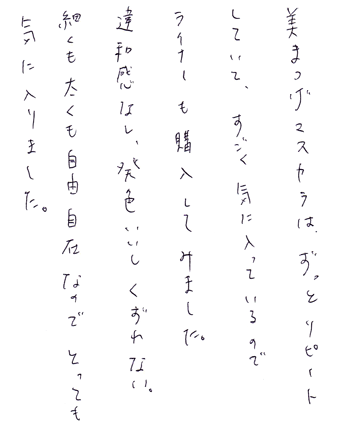 美まつげマスカラは、ずっとリピート
していて、すごく気に入っているので
ライナーも購入してみました。
違和感なし、発色いいしくずれない。
細くも太くも自由自在なので とっても
気に入りました。